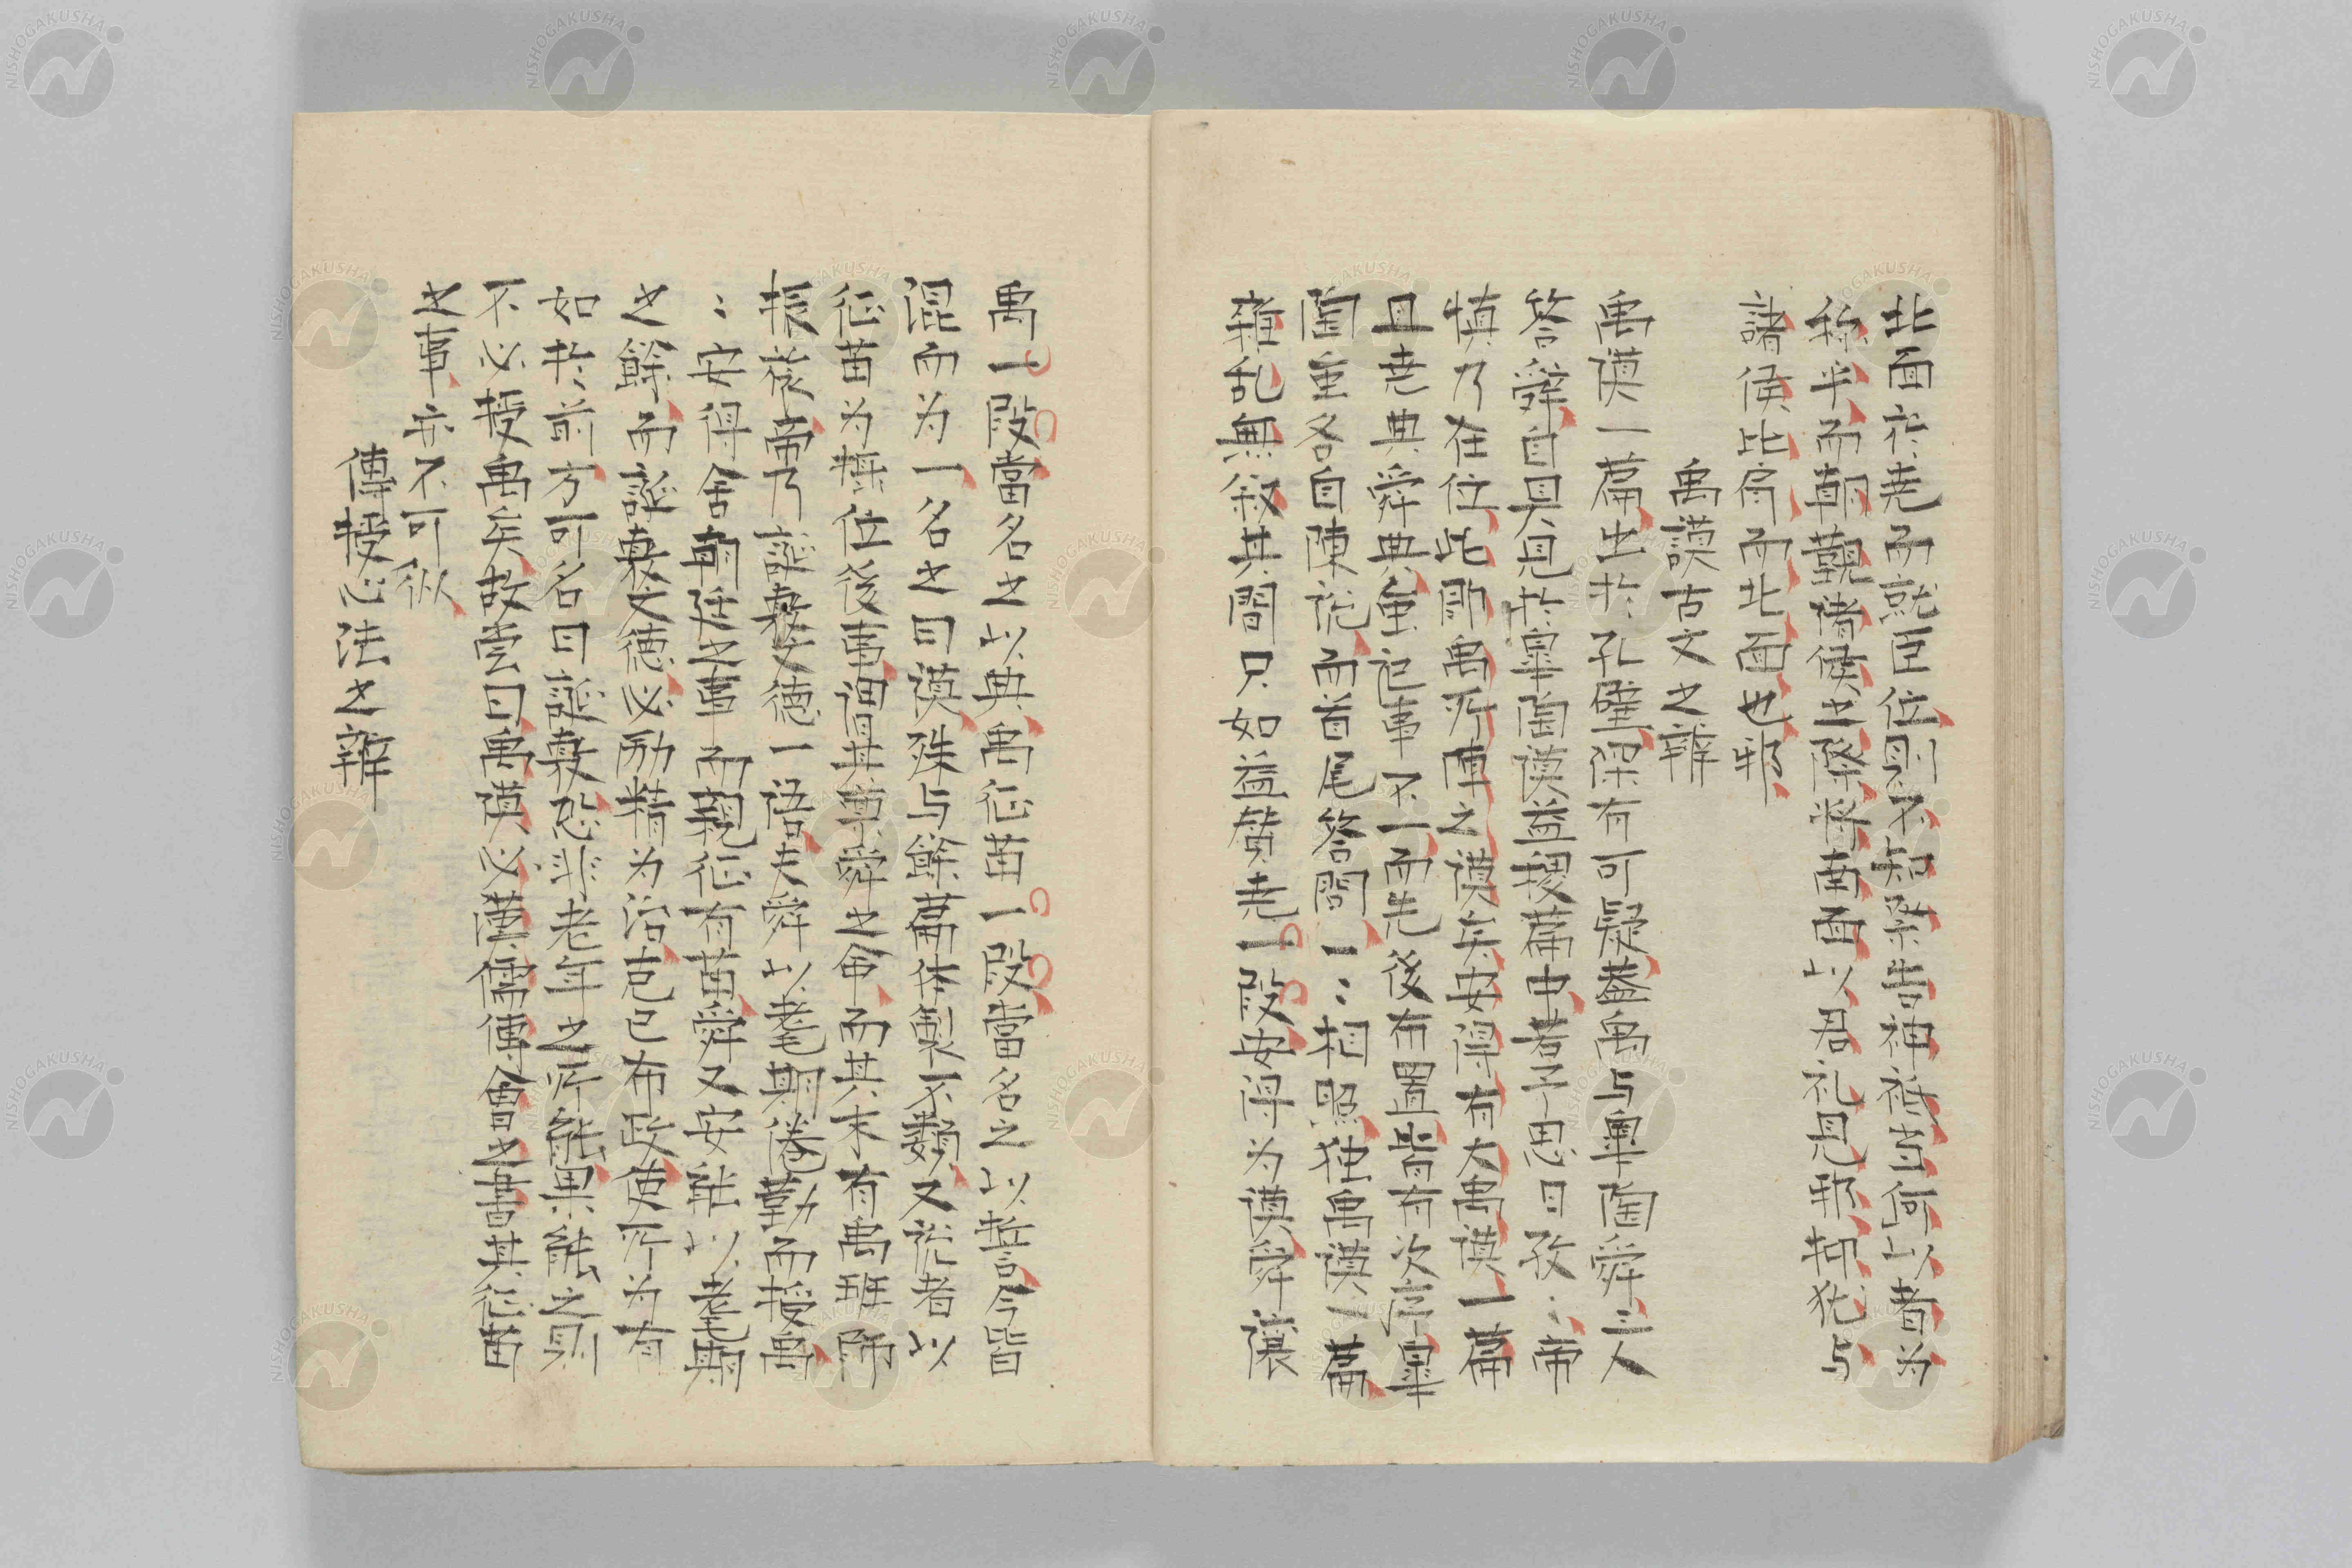 北面於尭而就臣位則不知柴告神祇当何以者为
称乎而朝覲諸侯之際将南面以君礼見邪抑犹与
諸侯比肩而北面也邪
禹謨古文之辨
禹謨一篇出於孔壁深有可疑葢禹与皐陶舜三人
答舜自具見於皐陶謨益稷篇中若予思日孜〻帝
慎乃在位此即禹所陳之謨矣安得有大禹謨一篇
且尭典舜典虽记事不一而先後布置皆有次序皐
陶圭各自陳说而首尾答問一〻相照独禹謨一篇
雜乱無叙其間只如益賛尭一段安得为謨舜譲
禹一段當名之以典禹征苗一段當名之以誓今皆
混而为一名之曰謨殊与餘篇体製不類又说者以
征苗为摂位後事謂其禀舜之命而其末有禹班師
振旅帝乃誕敷文德一语夫舜以耄期倦勤而授禹
〻安得舍朝廷之事而親征有苗舜又安能以耄期
之餘而誕敷文德必励精为治克己布政使所为有
如於前方可名曰誕敷恐非老年之所能果能之則
不必授禹矣故尝曰禹謨必漢儒傅會之書其征苗
之事亦不可㑅
傳授心法之辨